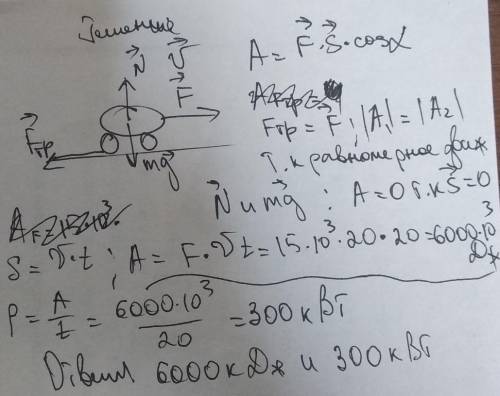 Решение
N⃗ v⃗
F⃗
F⃗тр
mg⃗
A = F⃗·S⃗·cosα
Fтр = F⃗; |A₁| = |A₂|
т.к равномерное движ
N⃗ и mg⃗ : A = 0 т.к S⃗ = 0
S = v⃗·t ; A = F·vt = 15·10³·20·20 = 6000·10³ Дж
P = A/t = 6000·10³/20 = 300 кВт
Ответ 6000 кДж и 300 кВт